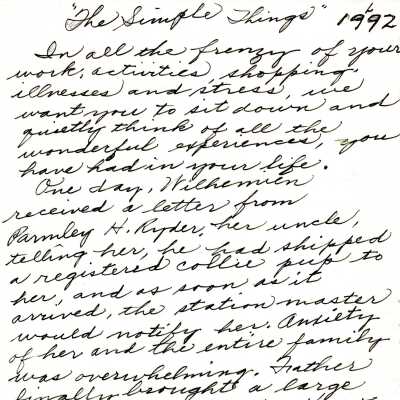 "The Simple Things" 1992
In all the frenzy of your
work, activities, shopping,
illnesses and stress, we
want you to sit down and
quietly think of all the
wonderful experiences, you
have had in your life.
One day, Wilhemien
received a letter from
Parmley H. Ryder, her uncle,
telling her, he had shipped
a registered collie pup to
her, and as soon as it
arrived, the station master
would notify her. Anxiety
of her and the entire family
was overwhelming. Father
finally brought a large